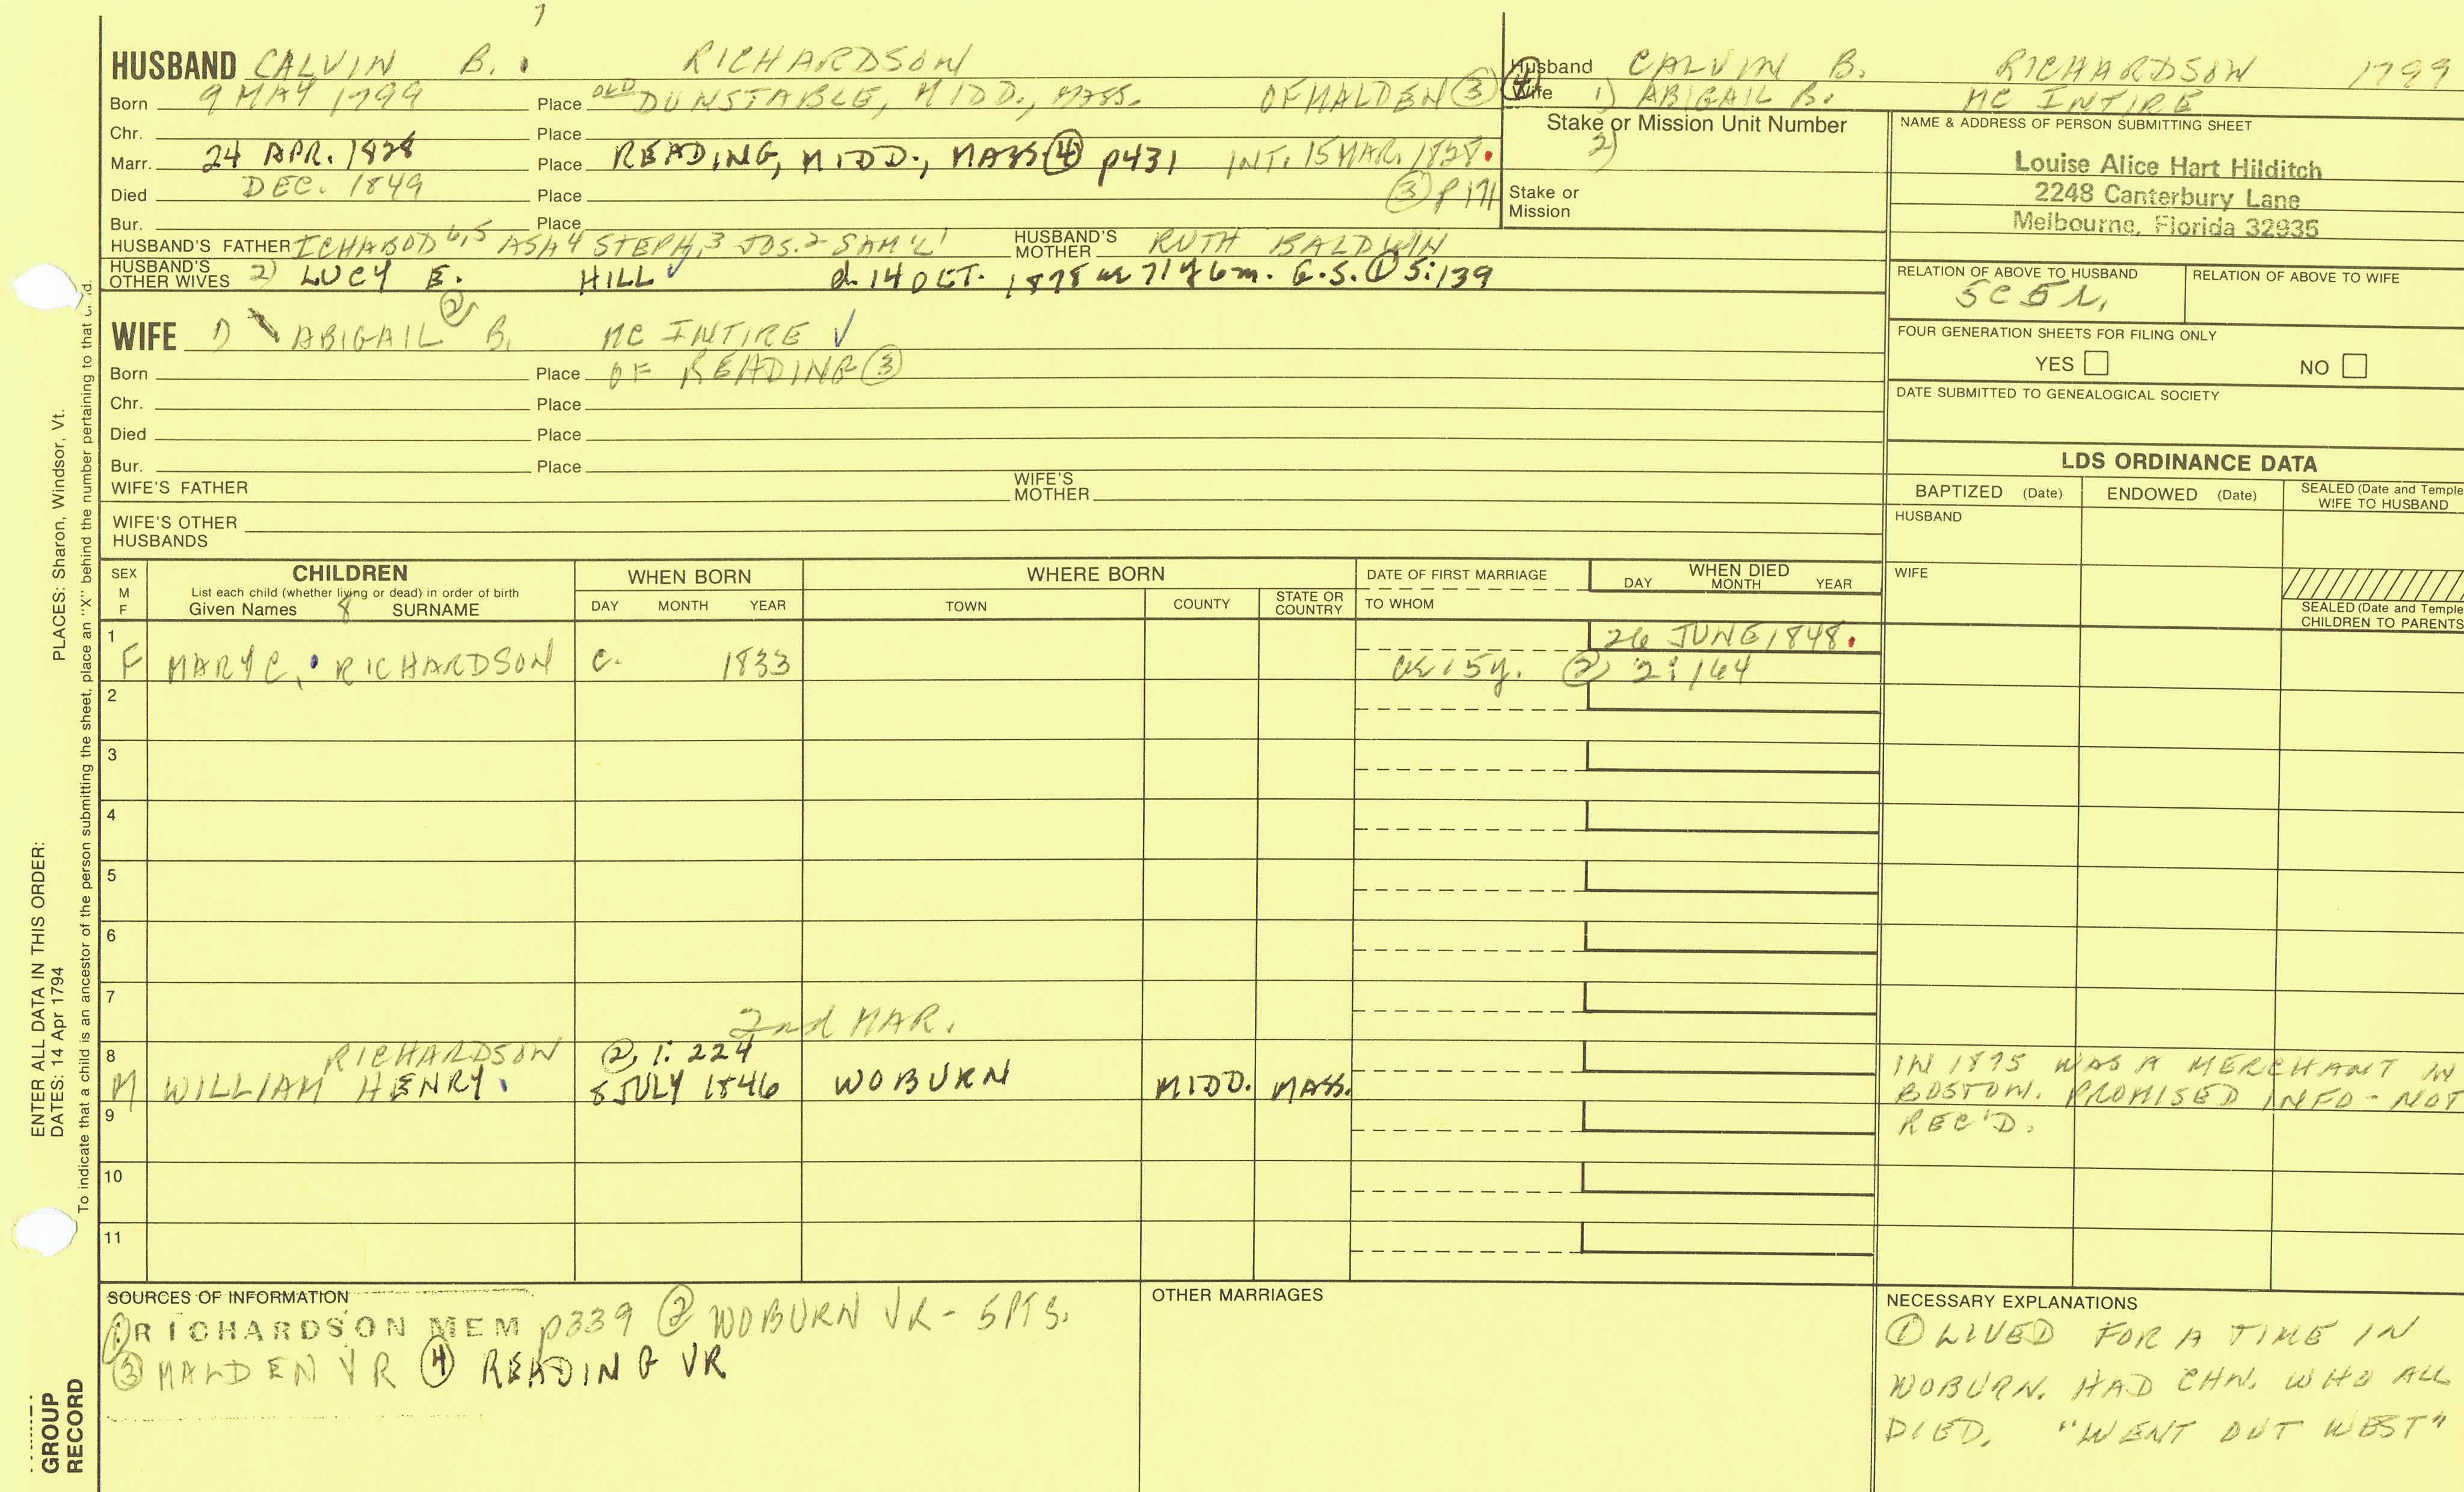 7
HUSBAND CALVIN B. RICHARDSON
Born 9 MAY 1799 Place OLD DUNSTABLE, MIDD., MASS. OF MALDEN ③
Chr. Place
Marr. 24 APR. 1828 Place READING, MIDD., MASS ④ p431 INT. 15 MAR. 1828.
Died DEC. 1849 Place ③ P171
Bur. Place
HUSBAND'S FATHER ICHABOD 6,5 ASA 4 STEPH, 3 JOS. 2 SAM'L 1 HUSBAND'S MOTHER RUTH BALDWIN
HUSBAND'S OTHER WIVES 2) LUCY E. HILL ✓ d. 14 OCT. 1878 ae 71y 6m. G.S. ① 5:139
②
WIFE 1) ABIGAIL B. MC INTIRE ✓
Born Place OF READING ③
Chr. Place
Died Place
Bur. Place
WIFE'S FATHER WIFE'S MOTHER
WIFE'S OTHER HUSBANDS
Husband CALVIN B. RICHARDSON 1799
Wife 1) ABIGAIL B. MC INTIRE
Stake or Mission Unit Number
2)
Stake or
Mission
NAME & ADDRESS OF PERSON SUBMITTING SHEET
Louise Alice Hart Hilditch
2248 Canterbury Lane
Melbourne, Florida 32935
RELATION OF ABOVE TO HUSBAND RELATION OF ABOVE TO WIFE
5C 5R,
FOUR GENERATION SHEETS FOR FILING ONLY
YES NO
DATE SUBMITTED TO GENEALOGICAL SOCIETY
LDS ORDINANCE DATA
BAPTIZED (Date) ENDOWED (Date) SEALED (Date and Temple
WIFE TO HUSBAND
HUSBAND
WIFE
SEALED (Date and Temple
CHILDREN TO PARENTS
SEX
M
F
CHILDREN
List each child (whether living or dead) in order of birth
Given Names 8 SURNAME
WHEN BORN
DAY MONTH YEAR
WHERE BORN
TOWN COUNTY STATE OR COUNTRY
DATE OF FIRST MARRIAGE
TO WHOM
WHEN DIED
DAY MONTH YEAR
1 26 JUNE 1848.
F MARY C. RICHARDSON c. 1833 ae 15y. ② 2:164
2
3
4
5
6
7
2nd MAR.
8 RICHARDSON ② 1:224
M WILLIAM HENRY. 8 JULY 1846 WOBURN MIDD. MASS.
IN 1875 WAS A MERCHANT IN
BOSTON. PROMISED INFO - NOT
REC'D.
9
10
11
SOURCES OF INFORMATION
① RICHARDSON MEM p339 ② WOBURN VR - 5PTS.
③ MALDEN VR ④ READING VR
OTHER MARRIAGES
NECESSARY EXPLANATIONS
① LIVED FOR A TIME IN
WOBURN. HAD CHN. WHO ALL
DIED. "WENT OUT WEST"
ENTER ALL DATA IN THIS ORDER:
DATES: 14 Apr 1794 PLACES: Sharon, Windsor, Vt.
To indicate that a child is an ancestor of the person submitting the sheet, place an "X" behind the number pertaining to that
GROUP
RECORD